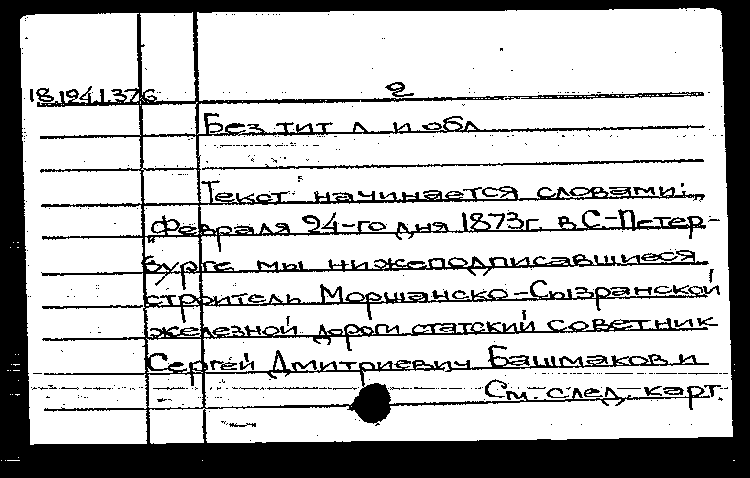 18.194.1.376
2
Без тит л. и обл
Текст начинается словами:
„Февраля 24-го дня 1873г. в С.-Петер-
бурге мы нижеподписавшиеся
строитель Моршанско-Сызранской
железной дороги статский советник
Сергей Дмитриевич Башмаков и
См. след. карт.